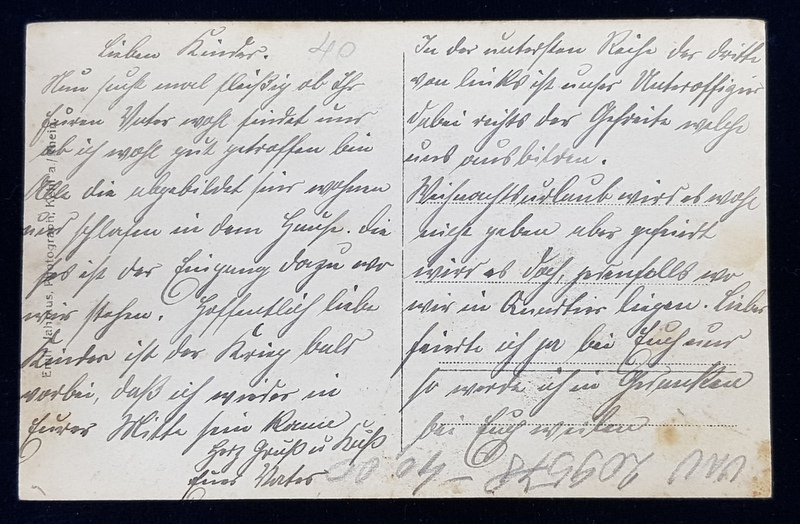 Lieben Kinder.
40
Nun sucht mal fleißig ob Ihr
Euren Vater wohl findet und
ob ich wohl gut getroffen bin
Alle die abgebildet sind wohnen
und schlafen in dem Hause. die
ist der Eingang dazu wo
wir stehen. Hoffentlich liebe
Kinder ist der Krieg bald
vorbei, daß ich wieder in
Eurer Mitte sein kann
Herz Gruß u Kuß
Euer Vater
In der untersten Reihe der dritte
von links ist unser Unteroffizier
dabei rechts der Gefreite welche
uns ausbilden.
Weihnachtsurlaub wird es wohl
nicht geben aber gefeiert
wird es doch, jedenfalls wo
wir in Quartier liegen. Lieber
feierte ich ja bei Euch und
so werde ich in Gedanken
bei Euch weilen
Photograph,